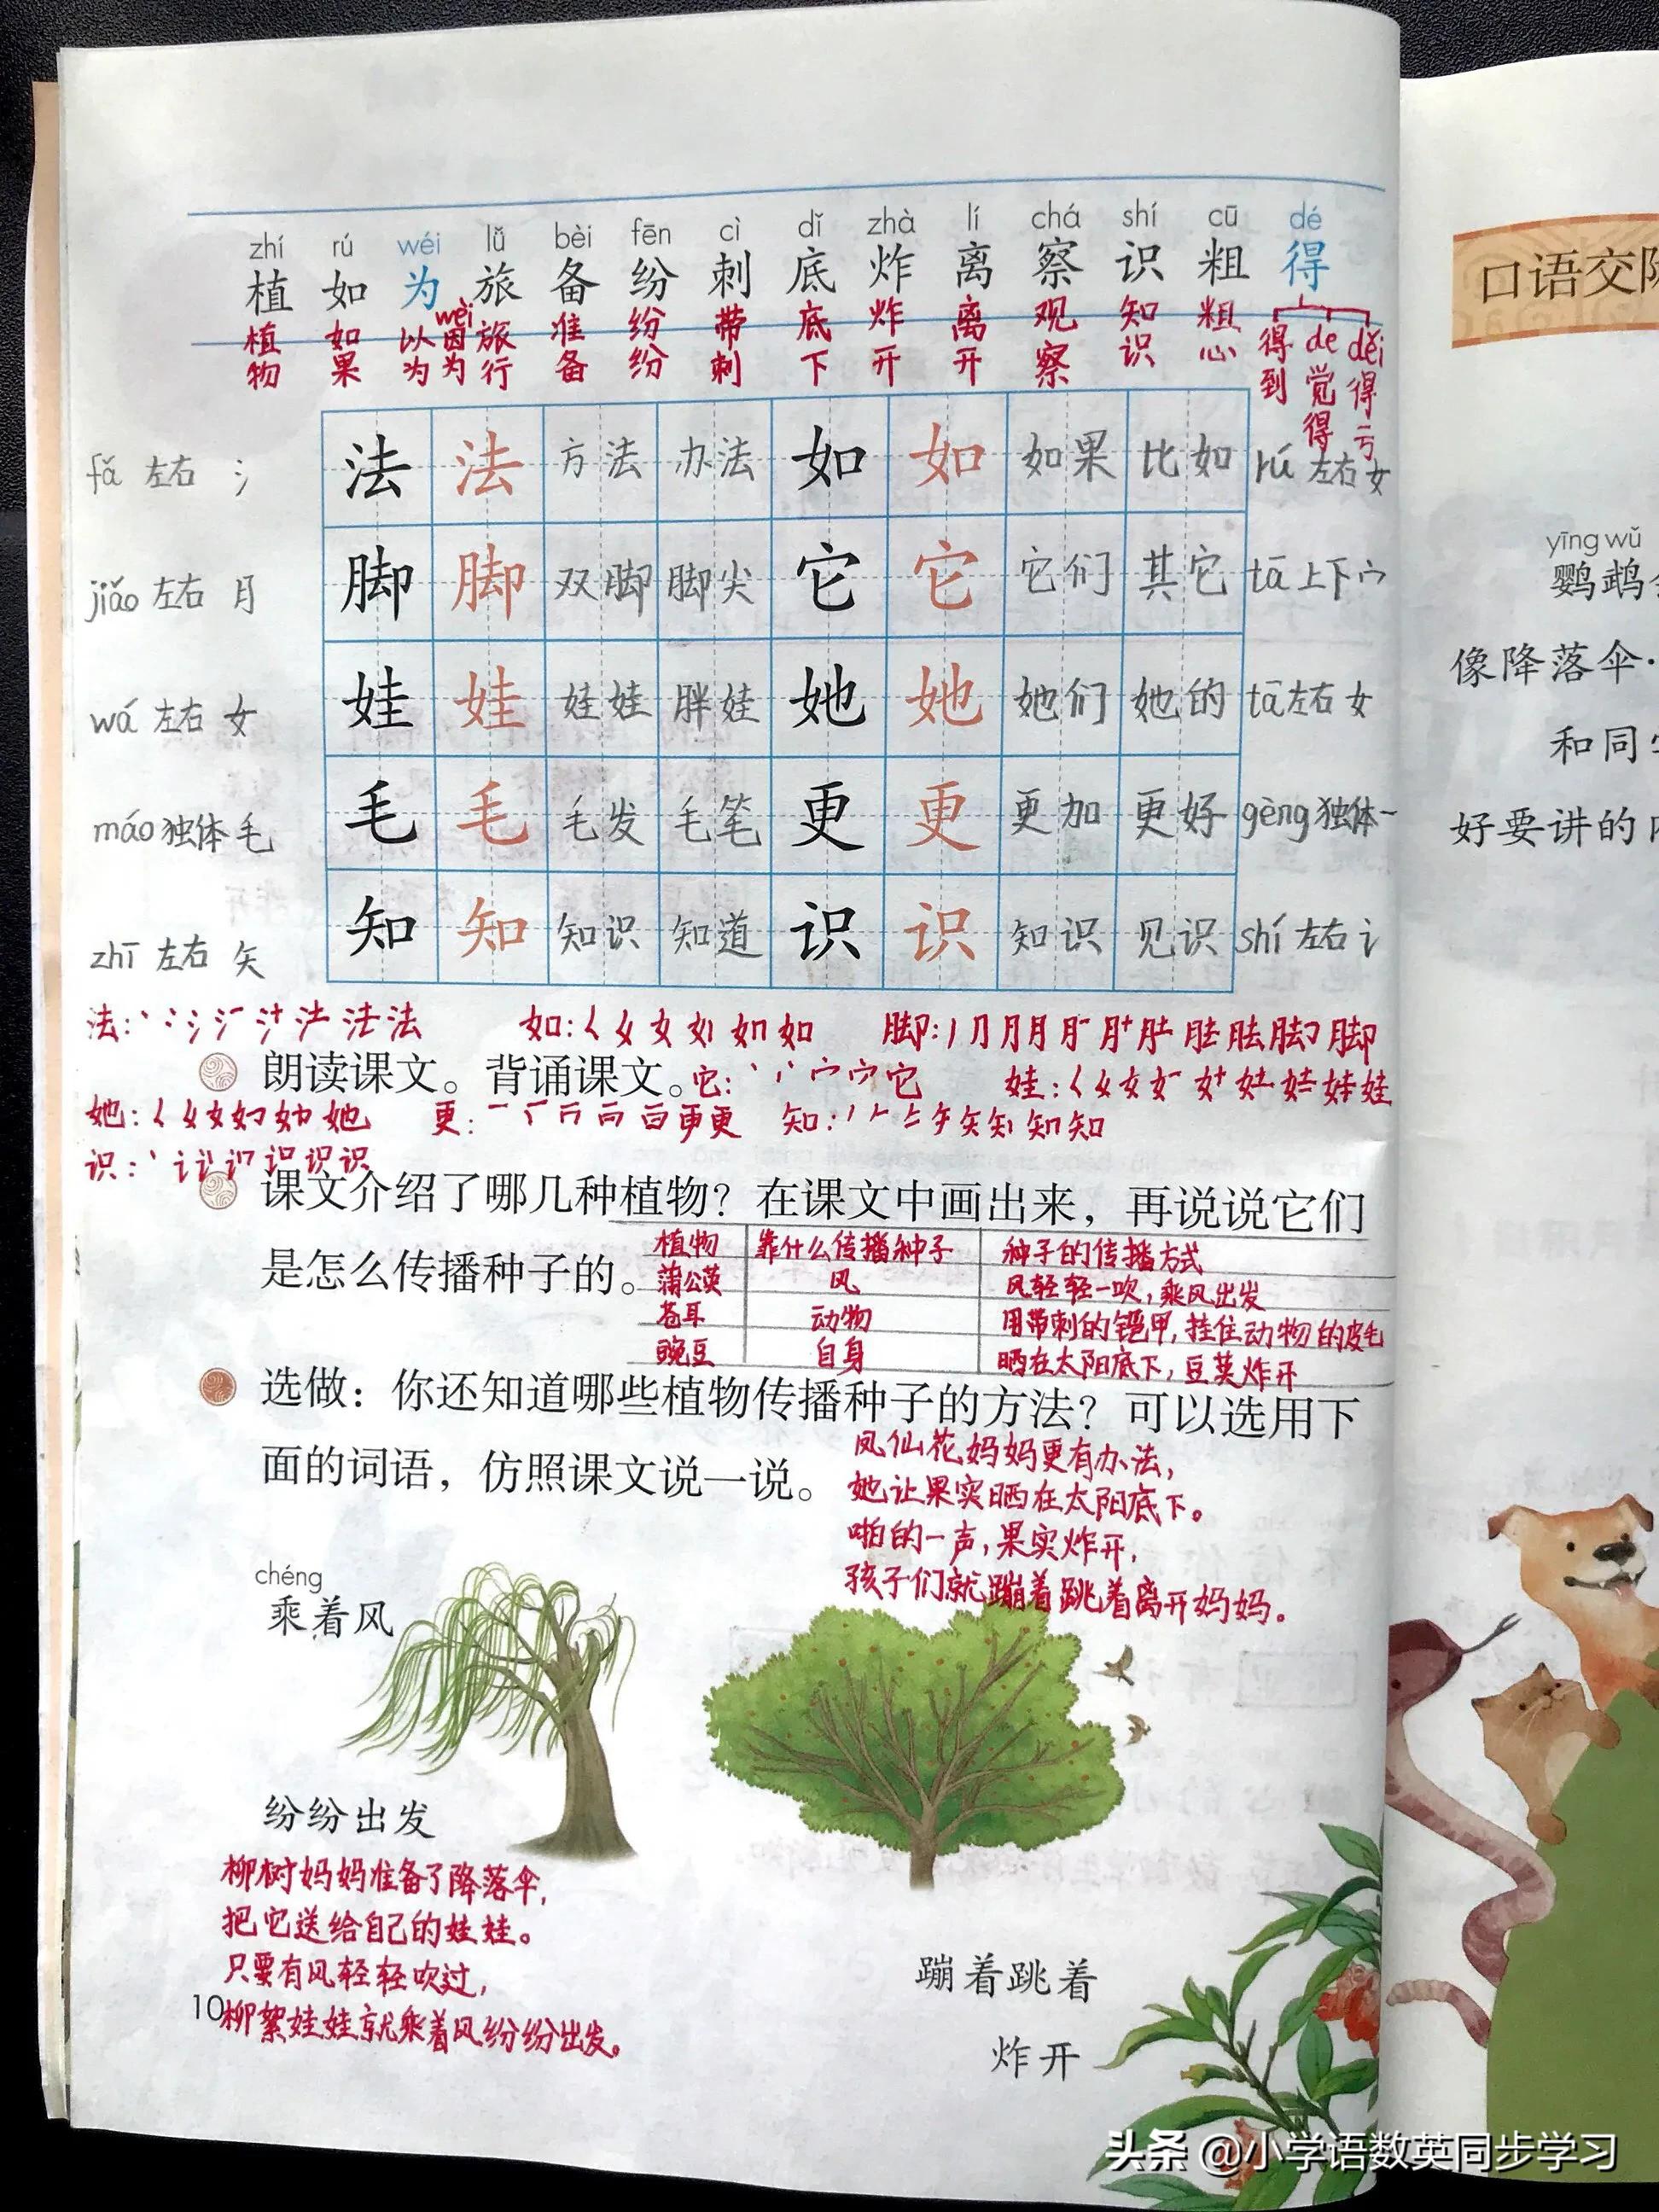 zhí rú wéi lǚ bèi fēn cì dǐ zhà lí chá shí cū dé
植 如 为 旅 备 纷 刺 底 炸 离 察 识 粗 得
wèi
植物 如果 以为 因为 旅行 准备 纷纷 带刺 底下 炸开 离开 观察 知识 粗心 得到 de 觉得 děi 得亏
fǎ 左右 氵 法 法 方法 办法 如 如 如果 比如 rú 左右 女
jiǎo 左右 月 脚 脚 双脚 脚尖 它 它 它们 其它 tā 上下 宀
wá 左右 女 娃 娃 娃娃 胖娃 她 她 她们 她的 tā 左右 女
máo 独体 毛 毛 毛 毛发 毛笔 更 更 更加 更好 gèng 独体 一
zhī 左右 矢 知 知 知识 知道 识 识 知识 见识 shí 左右 讠
法: 法 如: 如 脚: 脚
朗读课文。背诵课文。
它: 它 娃: 娃
她: 她 更: 更 知: 知
识: 识
课文介绍了哪几种植物？在课文中画出来，再说说它们
是怎么传播种子的。
植物 靠什么传播种子 种子的传播方式
蒲公英 风 风轻轻一吹,乘风出发
苍耳 动物 用带刺的铠甲,挂住动物的皮毛
豌豆 自身 晒在太阳底下,豆荚炸开
选做：你还知道哪些植物传播种子的方法？可以选用下
面的词语，仿照课文说一说。
凤仙花妈妈更有办法,
她让果实晒在太阳底下。
啪的一声,果实炸开,
孩子们就蹦着跳着离开妈妈。
chéng
乘着风
纷纷出发
柳树妈妈准备了降落伞,
把它送给自己的娃娃。
只要有风轻轻吹过,
柳絮娃娃就乘着风纷纷出发。
10
蹦着跳着
炸开
口语交
yīng wǔ
鹦鹉
像降落伞
和同
好要讲的
头条 @小学语数英同步学习